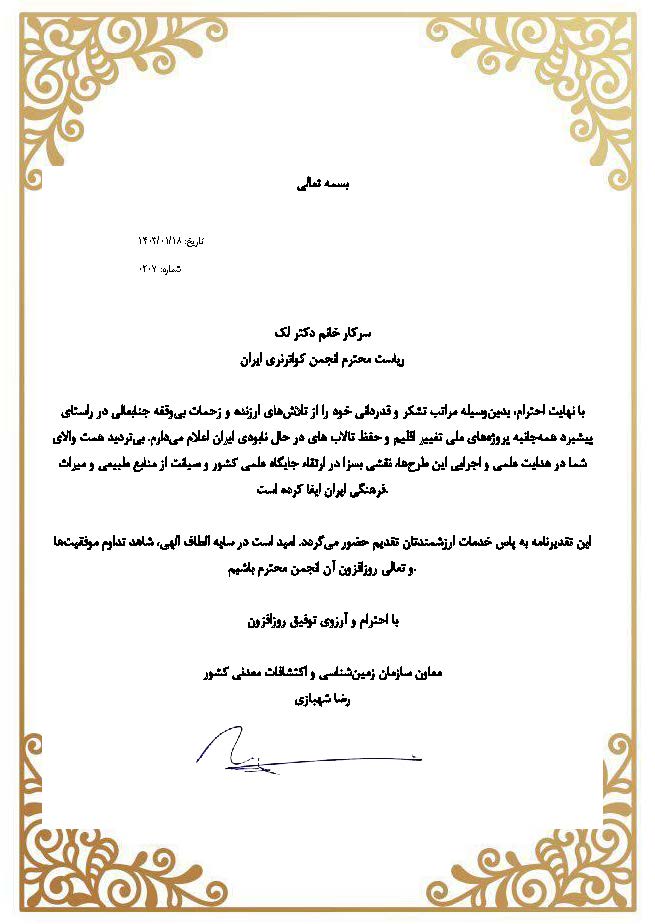 بسمه تعالی
تاریخ: ۱۴۰۴/۰۱/۱۸
شماره: ۰۲۰۷
سرکار خانم دکتر لک
ریاست محترم انجمن کواترنری ایران
با نهایت احترام، بدین‌وسیله مراتب تشکر و قدردانی خود را از تلاش‌های ارزنده و زحمات بی‌وقفه جنابعالی در راستای
پیشبرد همه‌جانبه پروژه‌های ملی تغییر اقلیم و حفظ تالاب های در حال نابودی ایران اعلام می‌دارم. بی‌تردید همت والای
شما در هدایت علمی و اجرایی این طرح‌ها، نقشی بسزا در ارتقاء جایگاه علمی کشور و صیانت از منابع طبیعی و میراث
فرهنگی ایران ایفا کرده است.
این تقدیرنامه به پاس خدمات ارزشمندتان تقدیم حضور می‌گردد. امید است در سایه الطاف الهی، شاهد تداوم موفقیت‌ها
و تعالی روزافزون آن انجمن محترم باشیم.
با احترام و آرزوی توفیق روزافزون
معاون سازمان زمین‌شناسی و اکتشافات معدنی کشور
رضا شهبازی